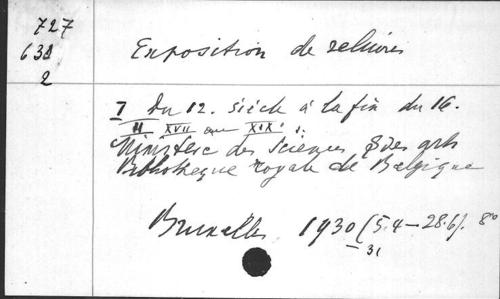 727
631
2
Exposition de reliures
I Du 12. siècle à la fin du 16.
II XVII au XIXe s.
Ministère des Sciences & des arts
Bibliothèque royale de Belgique
Bruxelles 1930 (5.4–28.6). 8°
–31